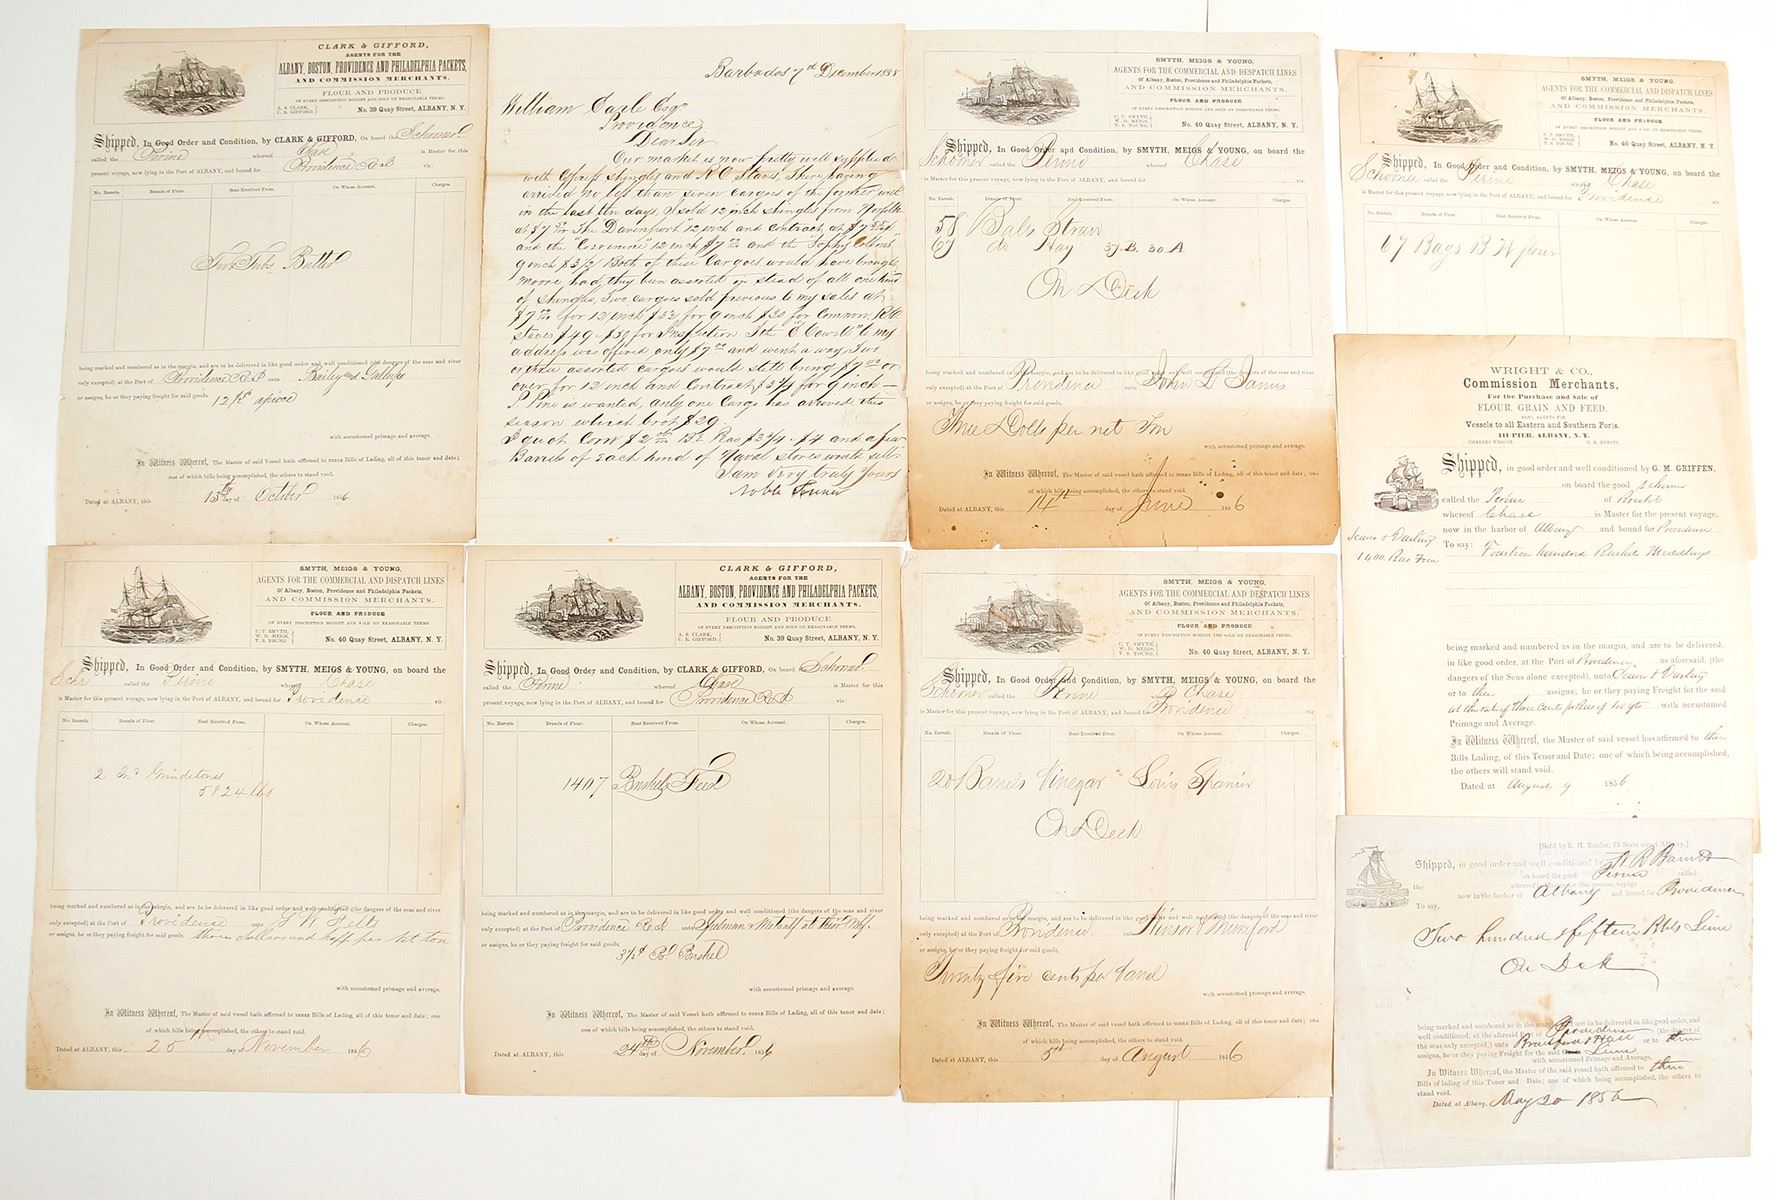 CLARK & GIFFORD,
AGENTS FOR THE
ALBANY, BOSTON, PROVIDENCE AND PHILADELPHIA PACKETS,
AND COMMISSION MERCHANTS.
FLOUR AND PRODUCE
OF EVERY DESCRIPTION BOUGHT AND SOLD ON REASONABLE TERMS.
A. S. CLARK,
C. E. GIFFORD. No. 39 Quay Street, ALBANY, N. Y.
Shipped, In Good Order and Condition, by CLARK & GIFFORD, On board the Schooner
called the Perine whereof Chase is Master for this
present voyage, now lying in the Port of ALBANY, and bound for Providence R. I. viz:
No. Barrels. Brands of Flour. Boat Received From. On Whose Account. Charges.
Two Tubs Butter
being marked and numbered as in the margin, and are to be delivered in like good order and well conditioned (the dangers of the seas and river
only excepted) at the Port of Providence R. I. unto Bailey and
or assigns, he or they paying freight for said goods, 12 1/2 apiece
with accustomed primage and average.
In Witness Whereof, The Master of said Vessel hath affirmed to THREE Bills of Lading, all of this tenor and date;
one of which bills being accomplished, the others to stand void.
Dated at ALBANY, this 15th day of October 1856
Barbados 7th December 1888
William Earle Esqr
Providence
Dear Sir
Our market is now pretty well supplied
with Cypress shingles and R O Staves, There having
arrived no less than seven cargoes of the former with
in the last ten days, I sold 12 inch shingles from Norfolk
at $7 The Davenport 12 inch and contract at
and the 12 inch and the "Sophy
9 inch $3 1/2 Both of these Cargoes would have brought
Moore had they been assorted in stead of all one kind
of shingles, Two cargoes sold previous to my sales at
for 12 inch for 9 inch for Common R O
Staves for Inspection Sch to my
address was offered only $7 00 and went away Two
or three assorted cargoes would still bring $7 00 or
over for 12 inch and Contract for 9 inch —
P. Pine is wanted, only one Cargo has arrived this
season which brot $29.
I quote Corn Peas and a few
Barrels of each kind of Naval stores would sell
I am Very truly Yours
Noble
SMYTH, MEIGS & YOUNG,
AGENTS FOR THE COMMERCIAL AND DESPATCH LINES
Of Albany, Boston, Providence and Philadelphia Packets,
AND COMMISSION MERCHANTS.
FLOUR AND PRODUCE
OF EVERY DESCRIPTION BOUGHT AND SOLD ON REASONABLE TERMS.
C. T. SMYTH,
W. D. MEIGS,
T. S. YOUNG, No. 40 Quay Street, ALBANY, N. Y.
Shipped, In Good Order and Condition, by SMYTH, MEIGS & YOUNG, on board the
Schooner called the Perine whereof Chase
is Master for this present voyage, now lying in the Port of ALBANY, and bound for viz:
No. Barrels. Brands of Flour. Boat Received From. On Whose Account. Charges.
58 Bals Straw
67 do Hay 37. B. 30 A
On Deck
being marked and numbered as in the margin, and are to be delivered in like good order and well conditioned (the dangers of the seas and river
only excepted) at the Port of Providence unto John L
or assigns, he or they paying freight for said goods,
Three Dolls per net Ton
with accustomed primage and average.
In Witness Whereof, The Master of said vessel hath affirmed to THREE Bills of Lading, all of this tenor and date; one
of which bills being accomplished, the others to stand void.
Dated at ALBANY, this 14th day of June 1856
SMYTH, MEIGS & YOUNG,
AGENTS FOR THE COMMERCIAL AND DESPATCH LINES
Of Albany, Boston, Providence and Philadelphia Packets,
AND COMMISSION MERCHANTS.
FLOUR AND PRODUCE
OF EVERY DESCRIPTION BOUGHT AND SOLD ON REASONABLE TERMS.
C. T. SMYTH,
W. D. MEIGS,
T. S. YOUNG, No. 40 Quay Street, ALBANY, N. Y.
Shipped, In Good Order and Condition, by SMYTH, MEIGS & YOUNG, on board the
Schooner called the Perine whereof Chase
is Master for this present voyage, now lying in the Port of ALBANY, and bound for Providence viz:
No. Barrels. Brands of Flour. Boat Received From. On Whose Account. Charges.
67 Bags B W flour
WRIGHT & CO.,
Commission Merchants,
For the Purchase and Sale of
FLOUR, GRAIN AND FEED.
ALSO, AGENTS FOR
Vessels to all Eastern and Southern Ports.
111 PIER, ALBANY, N. Y.
CHARLES WRIGHT. H. S. HEWITT.
Shipped, in good order and well conditioned by G. M. GRIFFEN,
on board the good Schooner
called the Perine of
whereof Chase is Master for the present voyage,
now in the harbor of Albany and bound for Providence
To say: Fourteen hundred Bushels Middlings
& Darling
1400 Bus
being marked and numbered as in the margin, and are to be delivered,
in like good order, at the Port of Providence, as aforesaid, (the
dangers of the Seas alone excepted), unto & Darling
or to their assigns; he or they paying Freight for the said
at the rate of three cents with accustomed
Primage and Average.
In Witness Whereof, the Master of said vessel has affirmed to three
Bills Lading, of this Tenor and Date; one of which being accomplished,
the others will stand void.
Dated at August 9 1856
SMYTH, MEIGS & YOUNG,
AGENTS FOR THE COMMERCIAL AND DESPATCH LINES
Of Albany, Boston, Providence and Philadelphia Packets,
AND COMMISSION MERCHANTS.
FLOUR AND PRODUCE
OF EVERY DESCRIPTION BOUGHT AND SOLD ON REASONABLE TERMS.
C. T. SMYTH,
W. D. MEIGS,
T. S. YOUNG No. 40 Quay Street, ALBANY, N. Y.
Shipped, In Good Order and Condition, by SMYTH, MEIGS & YOUNG, on board the
Schr called the Perine whereof Chase
is Master for this present voyage, now lying in the Port of ALBANY, and bound for Providence viz:
No. Barrels. Brands of Flour. Boat Received From. On Whose Account. Charges.
2 Grindstones
5824 lbs
being marked and numbered as in the margin, and are to be delivered in like good order and well conditioned (the dangers of the seas and river
only excepted) at the Port of Providence unto G W Felts
or assigns, he or they paying freight for said goods, three dollars and half per net ton
with accustomed primage and average.
In Witness Whereof, The Master of said vessel hath affirmed to THREE Bills of Lading, all of this tenor and date; one
of which bills being accomplished, the others to stand void.
Dated at ALBANY, this 25 day of November 1856
CLARK & GIFFORD,
AGENTS FOR THE
ALBANY, BOSTON, PROVIDENCE AND PHILADELPHIA PACKETS,
AND COMMISSION MERCHANTS.
FLOUR AND PRODUCE
OF EVERY DESCRIPTION BOUGHT AND SOLD ON REASONABLE TERMS.
A. S. CLARK,
C. E. GIFFORD. No. 39 Quay Street, ALBANY, N. Y.
Shipped, In Good Order and Condition, by CLARK & GIFFORD, On board Schooner
called the Perine whereof Chase is Master for this
present voyage, now lying in the Port of ALBANY, and bound for Providence R. I. viz:
No. Barrels. Brands of Flour. Boat Received From. On Whose Account. Charges.
1407 Bushels Feed
being marked and numbered as in the margin, and are to be delivered in like good order and well conditioned (the dangers of the seas and river
only excepted) at the Port of Providence R. I. unto Spelman & Metcalf at their Whf.
or assigns, he or they paying freight for said goods,
3 1/2 ¢ Pr Bushel
with accustomed primage and average.
In Witness Whereof, The Master of said Vessel hath affirmed to THREE Bills of Lading, all of this tenor and date;
one of which bills being accomplished, the others to stand void.
Dated at ALBANY, this 24th day of November 1856
SMYTH, MEIGS & YOUNG,
AGENTS FOR THE COMMERCIAL AND DESPATCH LINES
Of Albany, Boston, Providence and Philadelphia Packets,
AND COMMISSION MERCHANTS.
FLOUR AND PRODUCE
OF EVERY DESCRIPTION BOUGHT AND SOLD ON REASONABLE TERMS.
C. T. SMYTH,
W. D. MEIGS,
T. S. YOUNG, No. 40 Quay Street, ALBANY, N. Y.
Shipped, In Good Order and Condition, by SMYTH, MEIGS & YOUNG, on board the
Schooner called the Perine whereof Chase
is Master for this present voyage, now lying in the Port of ALBANY, and bound for Providence viz
No. Barrels. Brands of Flour. Boat Received From. On Whose Account. Charges.
20 Barrels Vinegar Louis Spanier
On Deck
being marked and numbered as in the margin, and are to be delivered in like good order and well conditioned (the dangers of the seas and river
only excepted) at the Port of Providence unto Winsor & Mumford
or assigns, he or they paying freight for said goods,
Twenty five cents per barrel
with accustomed primage and average.
In Witness Whereof, The Master of said vessel hath affirmed to THREE Bills of Lading, all of this tenor and date; one
of which bills being accomplished, the others to stand void.
Dated at ALBANY, this 5th day of August 1856
[Sold by E. H. Bender, 75 State street Albany.]
Shipped, in good order and well conditioned by
on board the good Perine called
the whereof is Master for this present voyage
now in the harbor of Albany and bound for Providence
To say,
Two hundred & fifteen Bbls Lime
On Deck
being marked and numbered as in the margin, are to be delivered in like good order, and
well conditioned, at the aforesaid Port of Providence (the danger of
the seas only excepted,) unto or to their
assigns, he or they paying Freight for the said Lime
with accustomed Primage and Average,
In Witness Whereof, the Master of the said vessel hath affirmed to three
Bills of lading of this Tenor and Date; one of which being accomplished, the others to
stand void.
Dated at Albany, May 20 1856